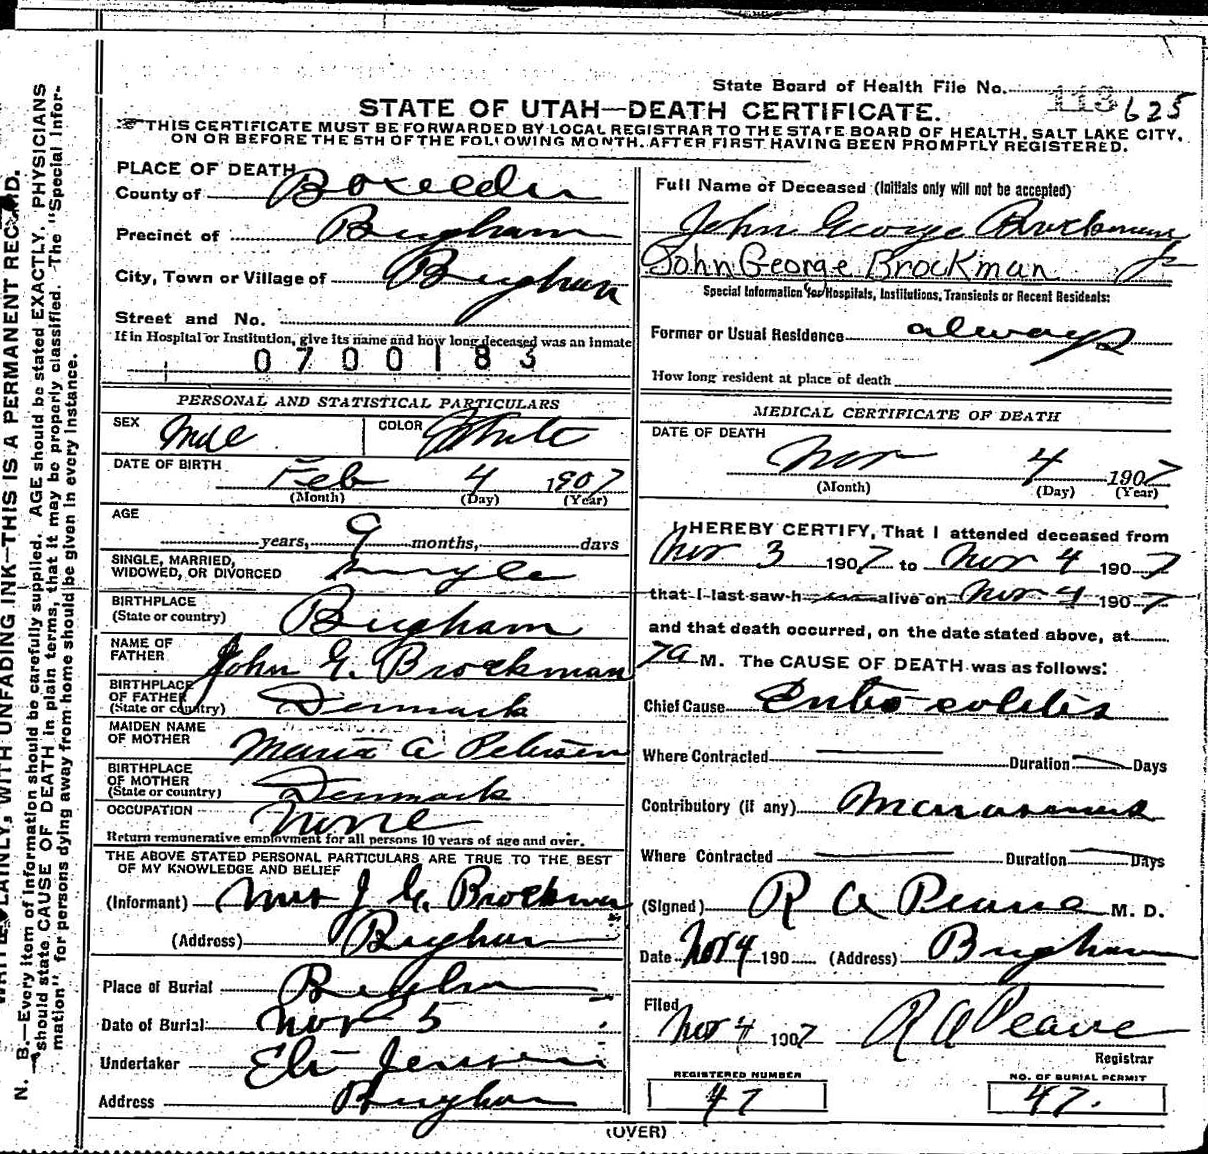 State Board of Health File No. 113 625
STATE OF UTAH—DEATH CERTIFICATE.
THIS CERTIFICATE MUST BE FORWARDED BY LOCAL REGISTRAR TO THE STATE BOARD OF HEALTH, SALT LAKE CITY,
ON OR BEFORE THE 5TH OF THE FOLLOWING MONTH. AFTER FIRST HAVING BEEN PROMPTLY REGISTERED.
PLACE OF DEATH
County of Boxelder
Precinct of Brigham
City, Town or Village of Brigham
Street and No.
If in Hospital or Institution, give its name and how long deceased was an inmate
0700183
PERSONAL AND STATISTICAL PARTICULARS
SEX Male COLOR White
DATE OF BIRTH Feb 4 1907
(Month) (Day) (Year)
AGE
years, 9 months, days
SINGLE, MARRIED,
WIDOWED, OR DIVORCED Single
BIRTHPLACE
(State or country) Brigham
NAME OF
FATHER John G. Brockman
BIRTHPLACE
OF FATHER
(State or country) Denmark
MAIDEN NAME
OF MOTHER Maria A Petersen
BIRTHPLACE
OF MOTHER
(State or country) Denmark
OCCUPATION None
Return remunerative employment for all persons 10 years of age and over.
THE ABOVE STATED PERSONAL PARTICULARS ARE TRUE TO THE BEST
OF MY KNOWLEDGE AND BELIEF
(Informant) Mrs J G. Brockman
(Address) Brigham
Place of Burial Brigham
Date of Burial: Nov 5
Undertaker Eli Jensen
Address Brigham
Full Name of Deceased (Initials only will not be accepted)
John George Brockman
John George Brockman Jr
Special Information for Hospitals, Institutions, Transients or Recent Residents:
Former or Usual Residence always
How long resident at place of death
MEDICAL CERTIFICATE OF DEATH
DATE OF DEATH
Nov 4 1907
(Month) (Day) (Year)
I HEREBY CERTIFY, That I attended deceased from
Nov 3 1907 to Nov 4 1907
that I last saw h im alive on Nov 4 1907
and that death occurred, on the date stated above, at
7a M. The CAUSE OF DEATH was as follows:
Chief Cause Entro-colitis
Where Contracted Duration Days
Contributory (if any) Marasmus
Where Contracted Duration Days
(Signed) R A Pearse M. D.
Date Nov 4 190 (Address) Brigham
Filed
Nov 4 1907 R A Pearse
Registrar
REGISTERED NUMBER NO. OF BURIAL PERMIT
47 47.
(OVER)
N. B.—Every item of information should be carefully supplied. AGE should be stated EXACTLY. PHYSICIANS
should state CAUSE OF DEATH in plain terms, that it may be properly classified. The "Special Infor-
mation" for persons dying away from home should be given in every instance.
PLAINLY, WITH UNFADING INK—THIS IS A PERMANENT RECORD.